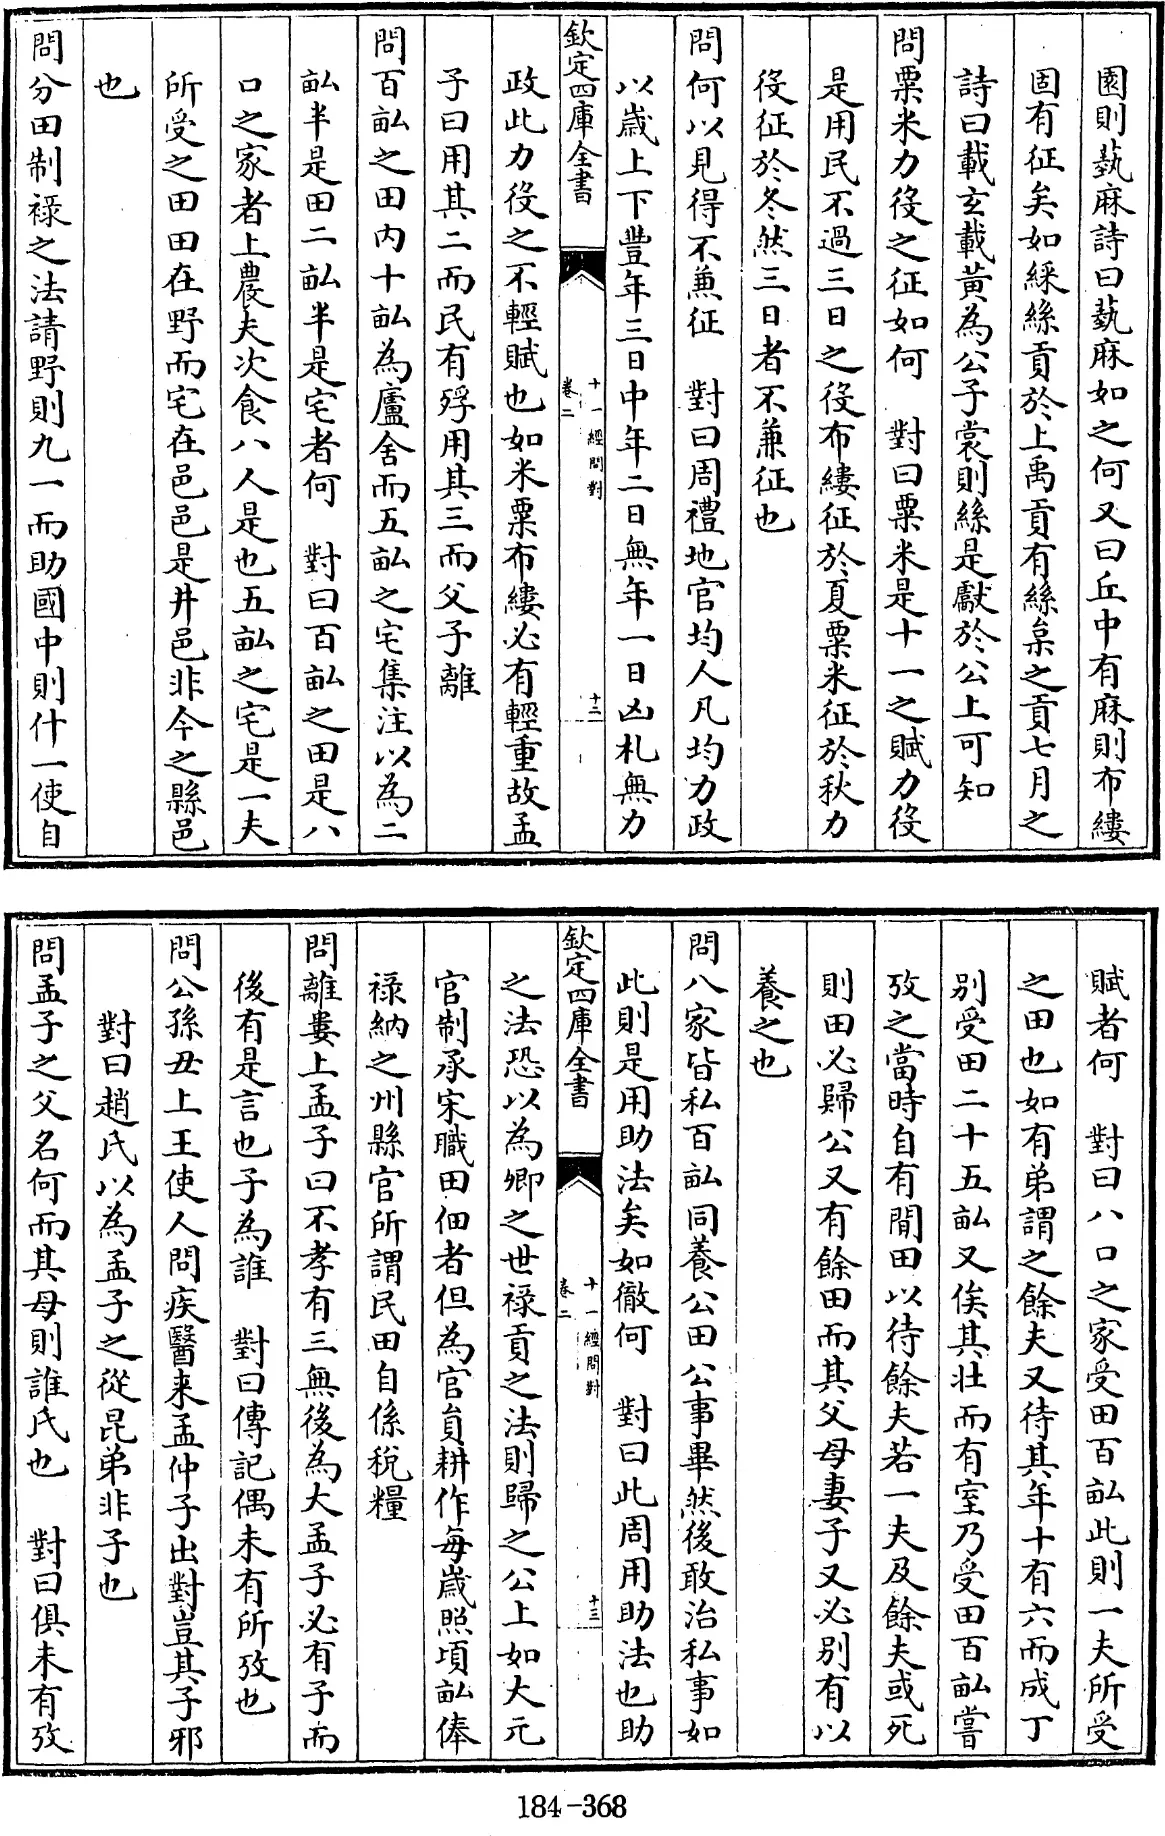 園則蓺麻詩曰蓺麻如之何又曰丘中有麻則布縷
固有征矣如綵絲貢於上禹貢有絲枲之貢七月之
詩曰載玄載黃為公子裳則絲是獻於公上可知
問粟米力役之征如何　對曰粟米是十一之賦力役
是用民不過三日之役布縷征於夏粟米征於秋力
役征於冬然三日者不兼征也
問何以見得不兼征　對曰周禮地官均人凡均力政
以歲上下豐年三日中年二日無年一日凶札無力
欽定四庫全書
十一經問對
卷二
十二
政此力役之不輕賦也如米粟布縷必有輕重故孟
子曰用其二而民有殍用其三而父子離
問百畝之田內十畝為廬舍而五畝之宅集注以為二
畝半是田二畝半是宅者何　對曰百畝之田是八
口之家者上農夫次食八人是也五畝之宅是一夫
所受之田田在野而宅在邑邑是井邑非今之縣邑
也
問分田制祿之法請野則九一而助國中則什一使自
賦者何　對曰八口之家受田百畝此則一夫所受
之田也如有弟謂之餘夫又待其年十有六而成丁
別受田二十五畝又俟其壯而有室乃受田百畝嘗
攷之當時自有閒田以待餘夫若一夫及餘夫或死
則田必歸公又有餘田而其父母妻子又必別有以
養之也
問八家皆私百畝同養公田公事畢然後敢治私事如
此則是用助法矣如徹何　對曰此周用助法也助
欽定四庫全書
十一經問對
卷二
十三
之法恐以為卿之世祿貢之法則歸之公上如大元
官制承宋職田佃者但為官員耕作每歲照頃畝俸
祿納之州縣官所謂民田自係稅糧
問離婁上孟子曰不孝有三無後為大孟子必有子而
後有是言也子為誰　對曰傳記偶未有所攷也
問公孫丑上王使人問疾醫来孟仲子出對豈其子邪
對曰趙氏以為孟子之從昆弟非子也
問孟子之父名何而其母則誰氏也　對曰俱未有攷
184-368